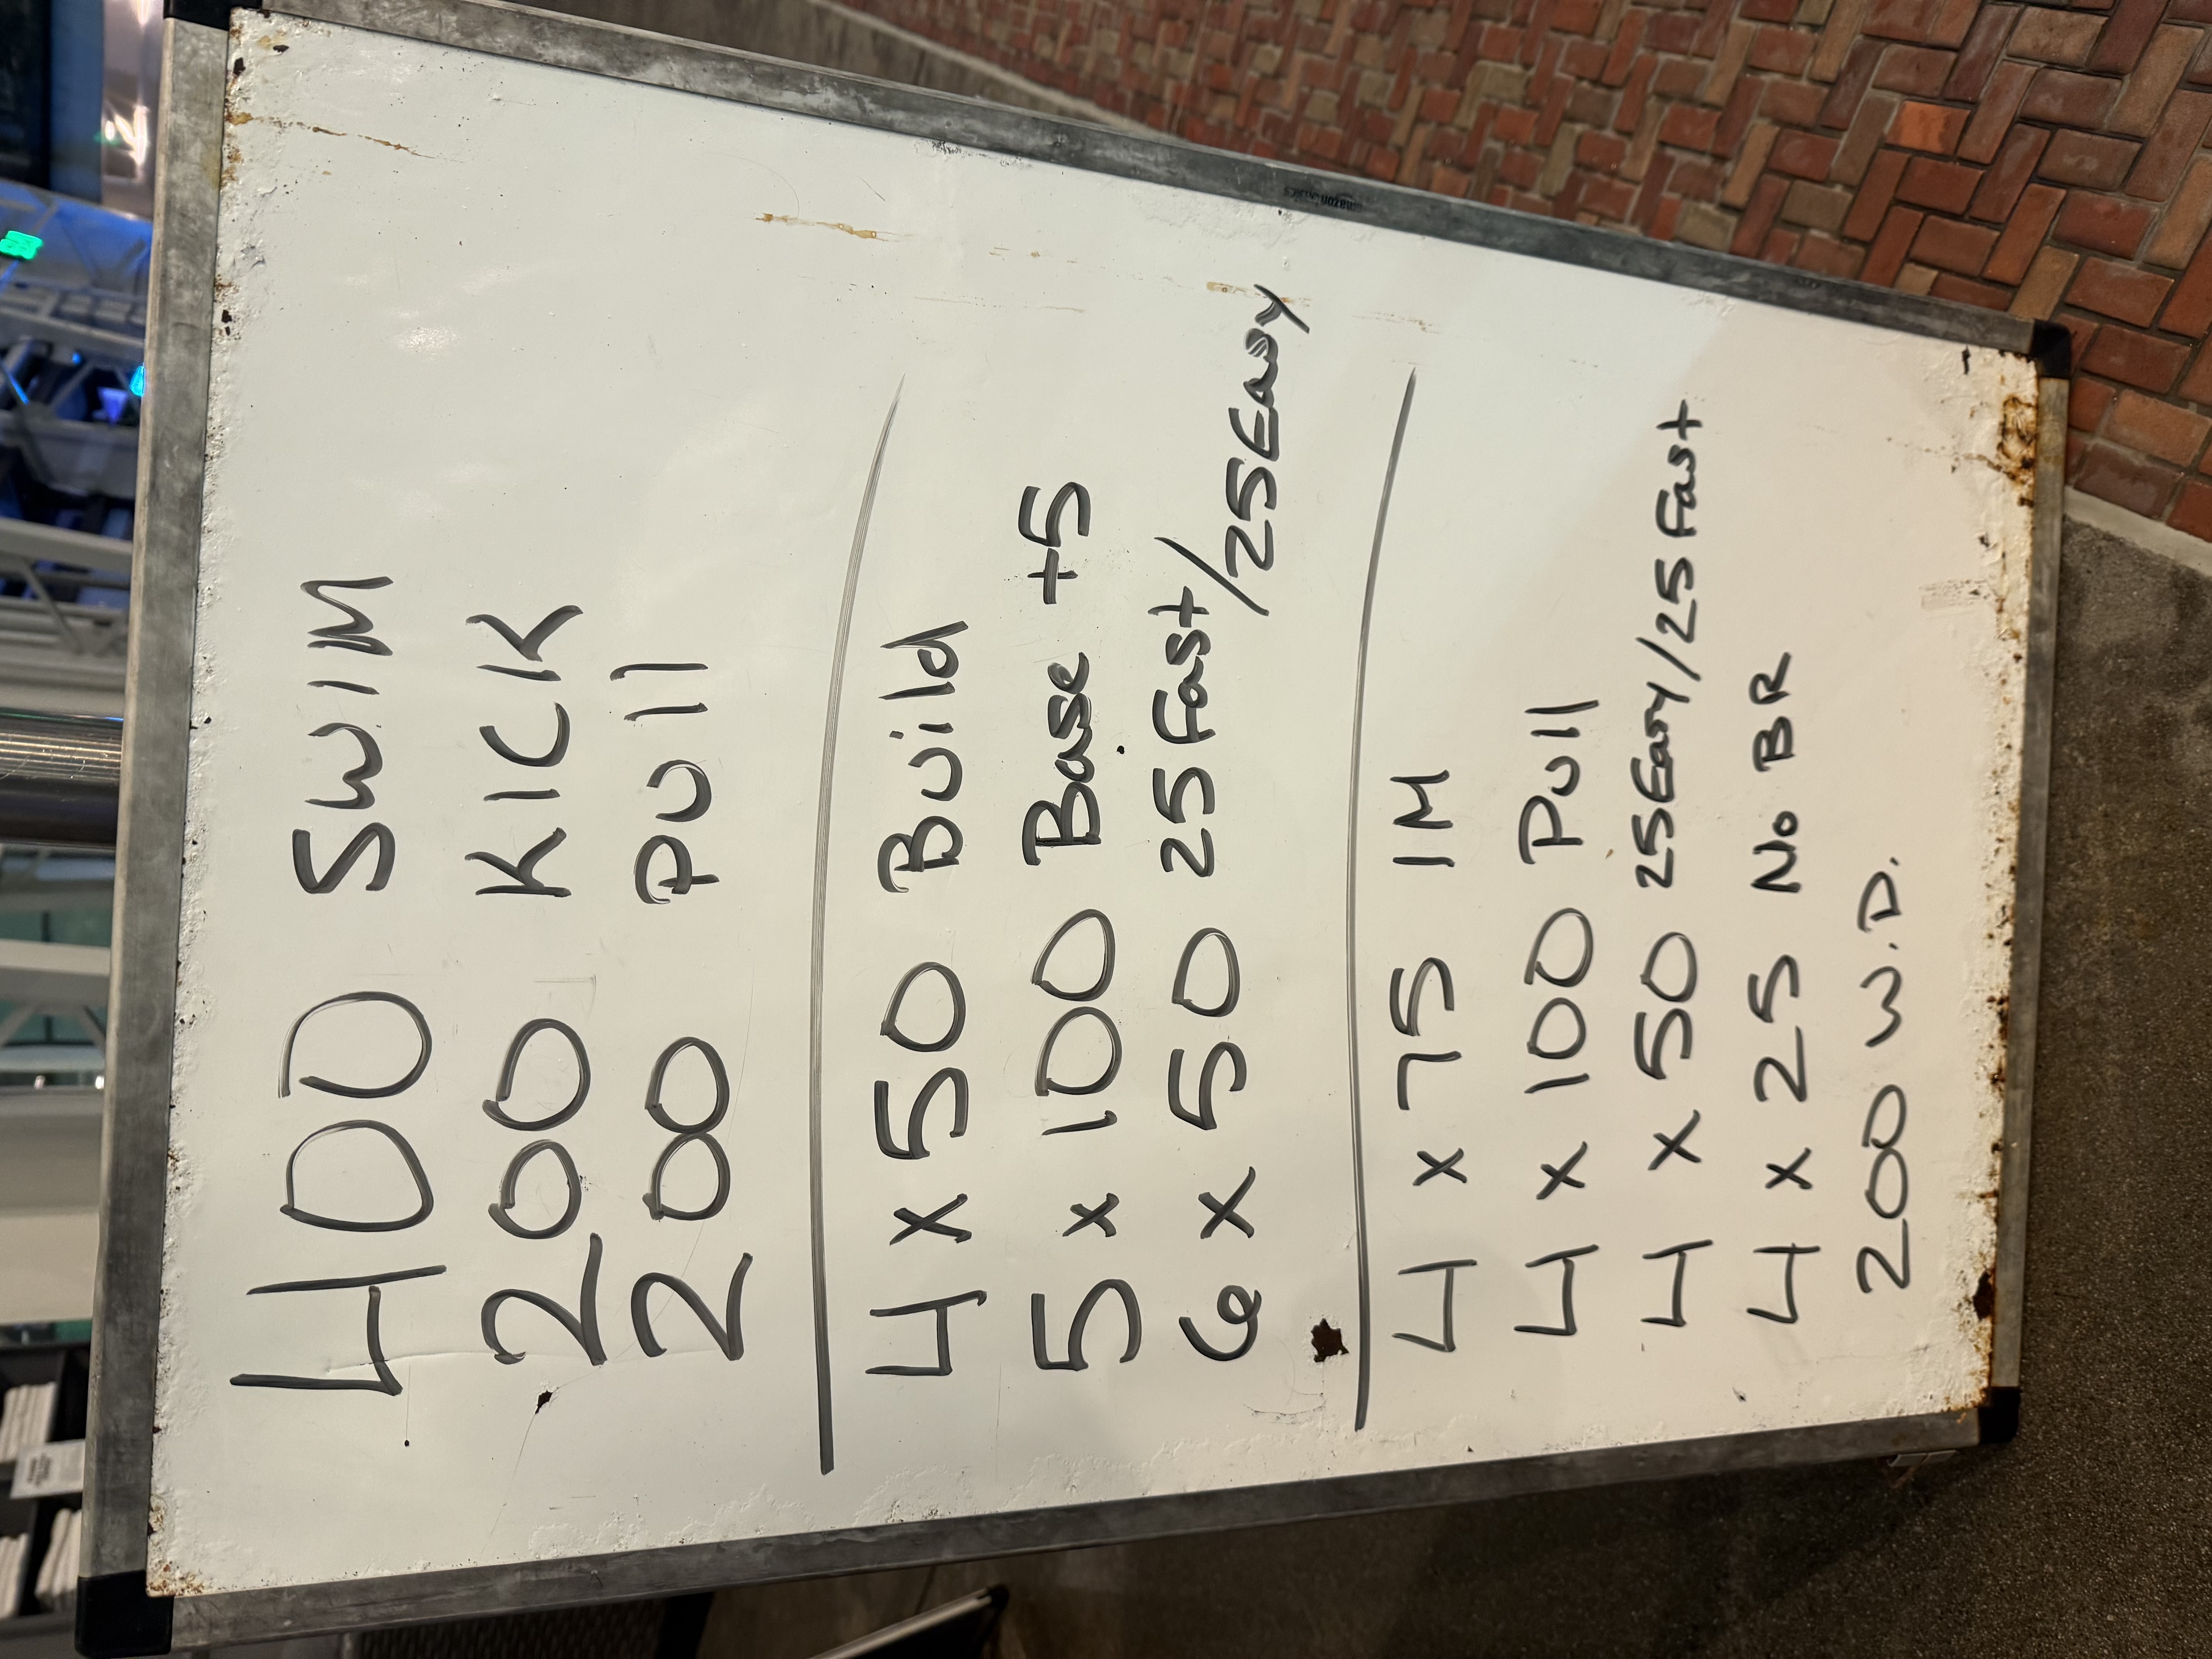 400 SWIM
200 KICK
200 Pull
4 x 50 Build
5 x 100 Base +5
6 x 50 25 Fast/25 Easy
4 x 75 IM
4 x 100 Pull
4 x 50 25 Easy/25 Fast
4 x 25 No BR
200 W.D.
amazon basics